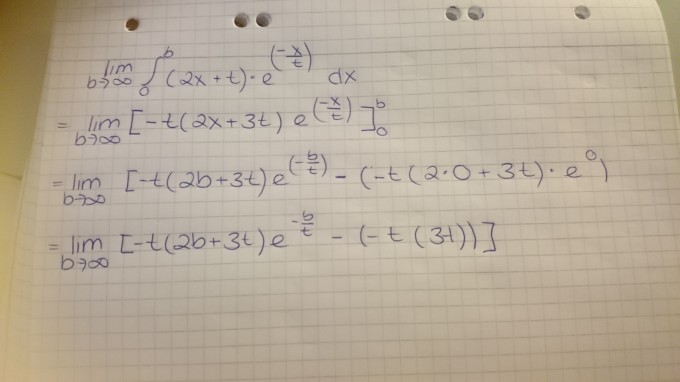 lim b→∞ ∫₀ᵇ (2x+t)·e^(-x/t) dx
= lim b→∞ [-t(2x+3t) e^(-x/t)]₀ᵇ
= lim b→∞ [-t(2b+3t)e^(-b/t) - (-t(2·0+3t)·e⁰)
= lim b→∞ [-t(2b+3t)e^-b/t - (-t(3t))]